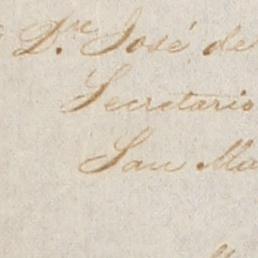 Dre José de
Secretario
San Ma